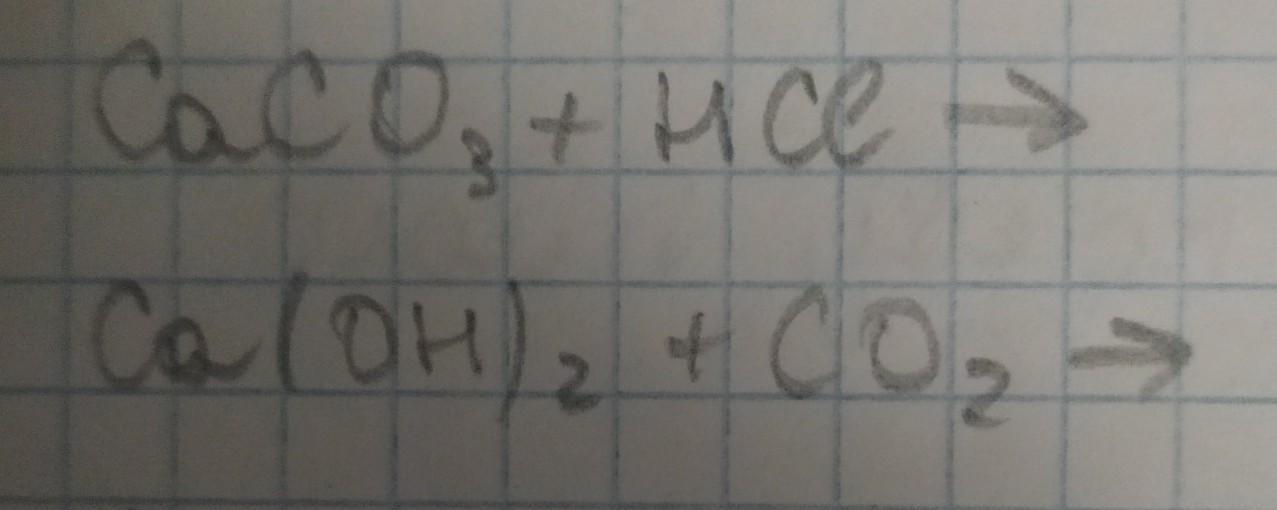 CaCO₃ + HCl →
Ca(OH)₂ + CO₂ →